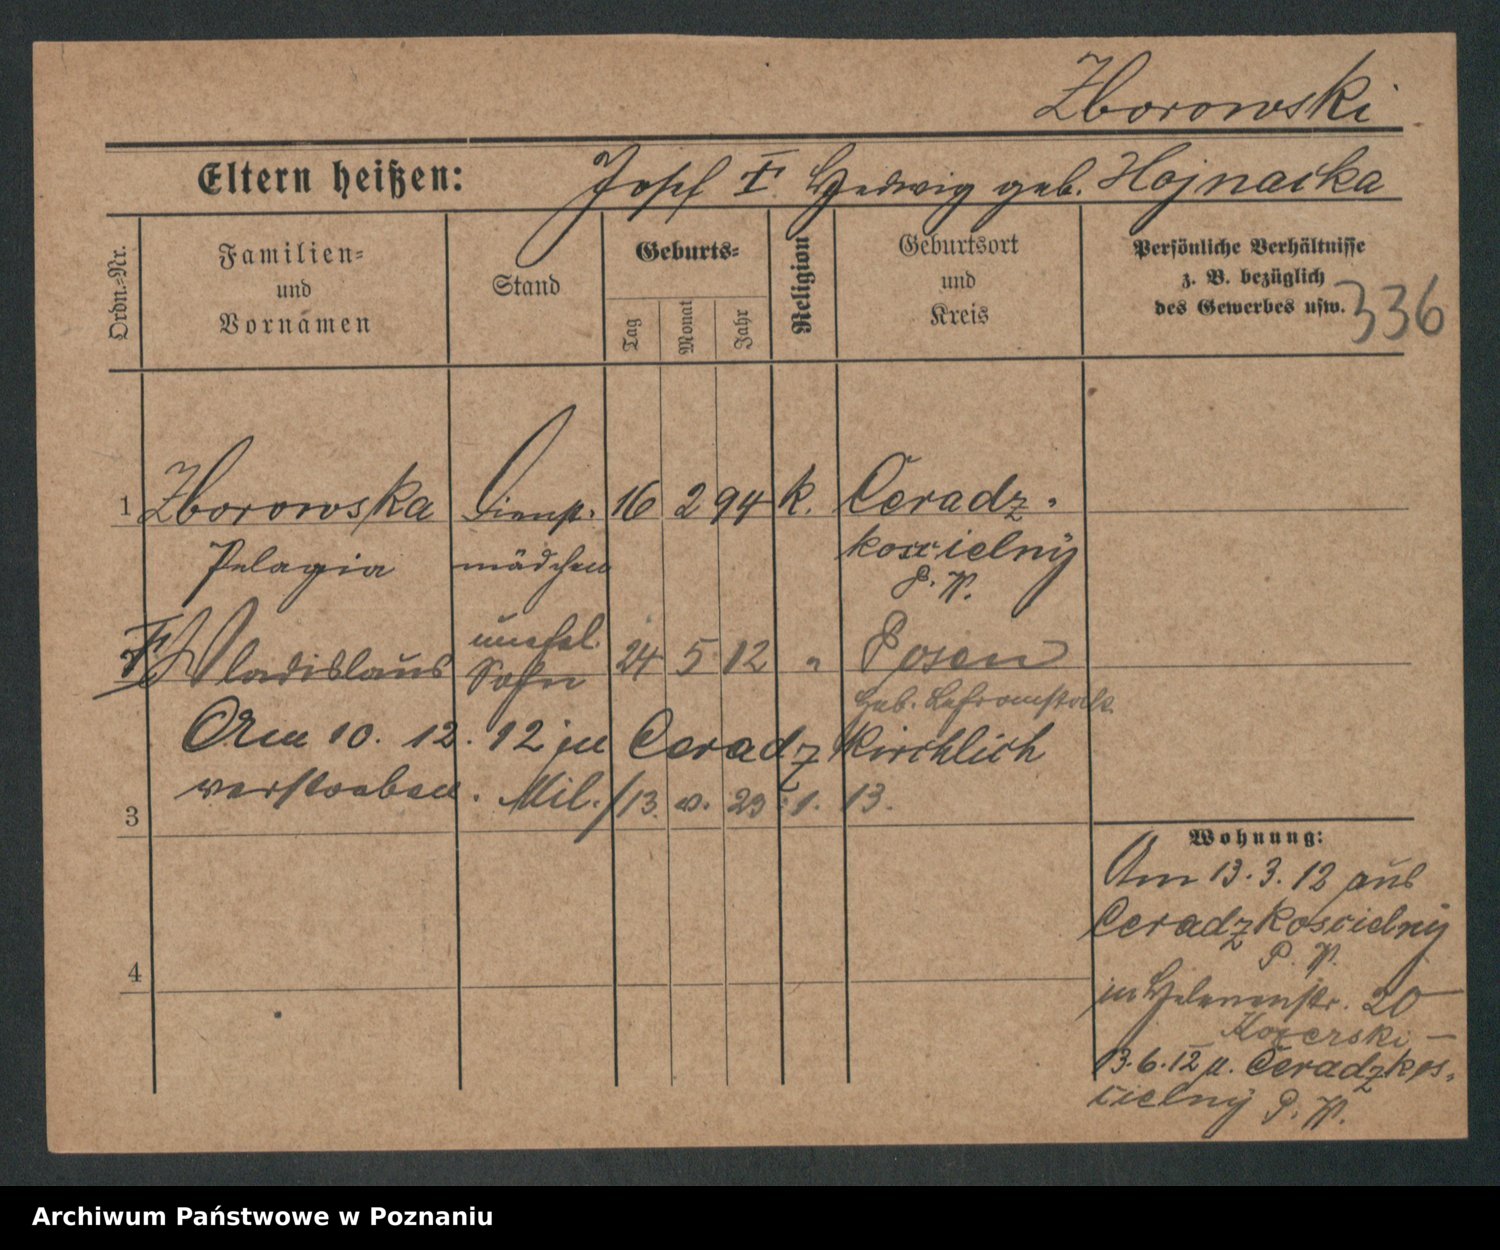 Zborowski
Eltern heißen: Josef † Hedwig geb. Hojnacka
Ordn.-Nr.
Familien-
und
Vornamen
Stand
Geburts-
Tag
Monat
Jahr
Religion
Geburtsort
und
Kreis
Persönliche Verhältnisse
z. B. bezüglich
des Gewerbes usw.
336
1 Zborowska Dienst- 16 2 94 k. Ceradz-
Pelagia mädchen koscielny
P. W.
† Wladislaus unehel. Sohn 24 5 12 " Posen
Geb.
Am 10. 12. 12 in Ceradz kirchlich
verstorben. Mil./13. v. 23.1.13.
3
4
Wohnung:
Am 13.3.12 aus
Ceradzkoscielny
P. W.
in Helenenstr. 20
Kozerski –
13.6.12 n. Ceradzkos-
cielny P. W.
Archiwum Państwowe w Poznaniu